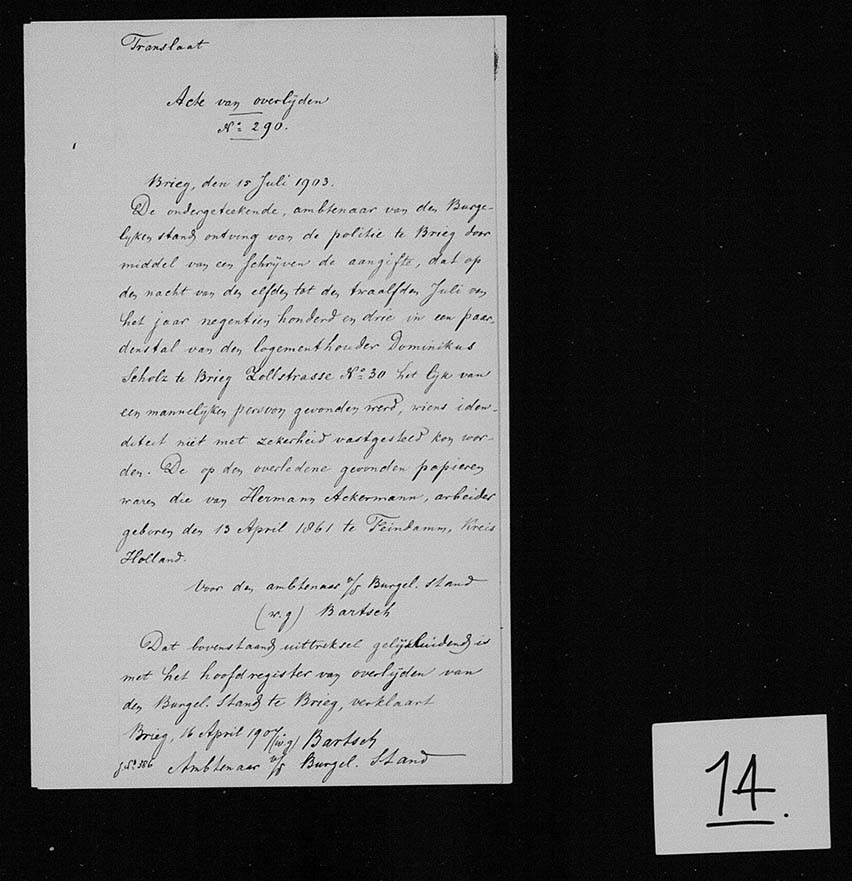 Translaat
Acte van overlijden
No 290.
Brieg, den 15 Juli 1903.
De ondergeteekende, ambtenaar van den Burge-
lijken stand ontving van de politie te Brieg door
middel van een schrijven de aangifte, dat op
den nacht van den elfden tot den twaalfden Juli van
het jaar negentien honderd en drie in een paar-
denstal van den logementhouder Dominikus
Scholz te Brieg Zollstrasse No 30 het lijk van
een mannelijken persoon gevonden werd, wiens iden-
diteit niet met zekerheid vastgesteld kon wor-
den. De op den overledene gevonden papieren
waren die van Hermann Ackermann, arbeider
geboren den 13 April 1861 te Feindamm, Kreis
Holland.
Voor den ambtenaar v/d Burgel. stand
(w.g) Bartsch
Dat bovenstaand uittreksel gelijkluidend is
met het hoofdregister van overlijden van
den Burgel. Stand te Brieg, verklaart
Brieg, 16 April 1907 (w.g) Bartsch
Ambtenaar v/d Burgel. Stand
14.